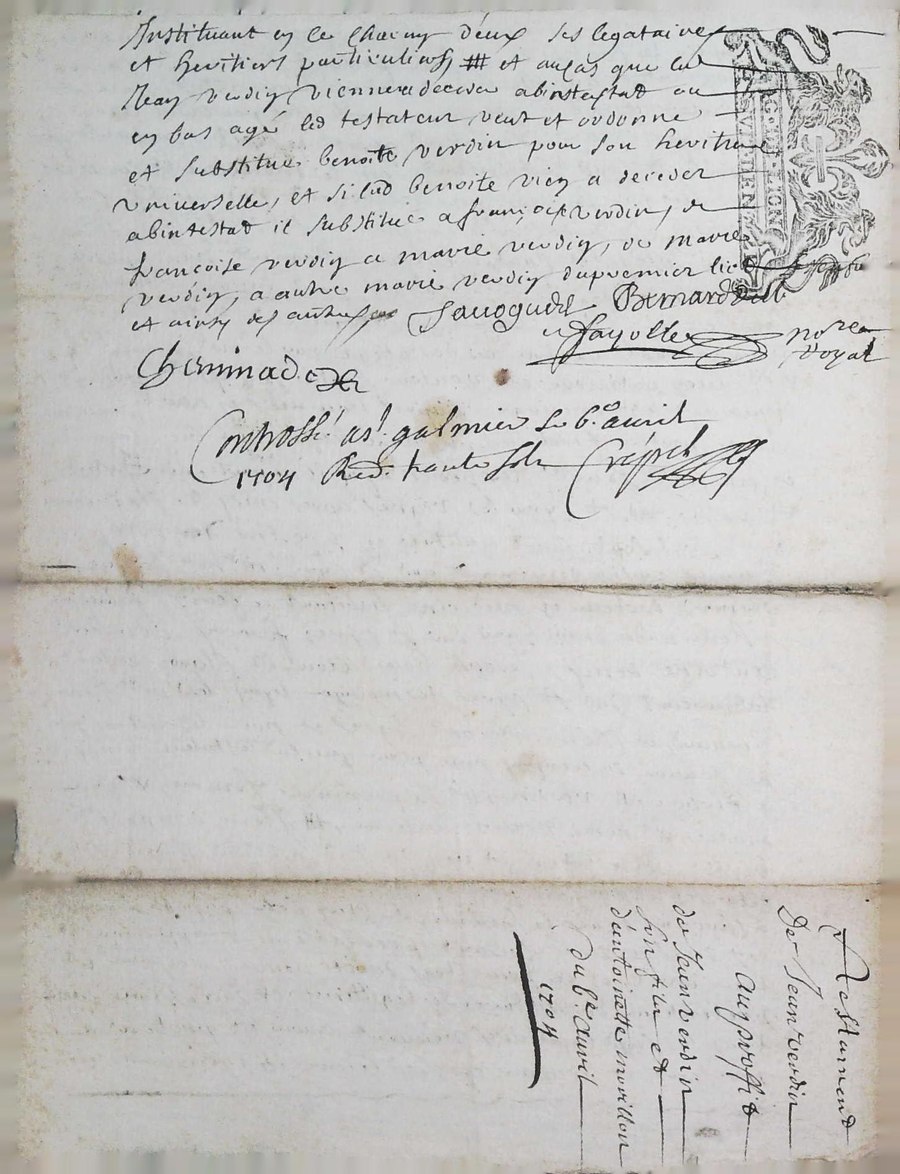 Instituant en ce chacun d'eux ses legataires
et heritiers particuliers # et au cas que led
Jean verdin viennera deceder abintestat ou
en bas agé led testateur veut et ordonne
et substitue benoite verdin pour son heritiere
universelle, et si lad benoite vien a deceder
abintestat il substitue a françoise verdin, de
françoise verdin a marie verdin, de marie
verdin, a autre marie verdin du premier lict
et ainsy des autres
Bernard
Fayolle no.re
royal
Cheminade
Controllé a s.t galmier le 6.e avril
1704 Red. trante sols
G 'DE' LION
Testament
De Jean verdin
au proffit
de Jean verdin
son fils et
d'antoinette morillon
du 6.e avril
1704